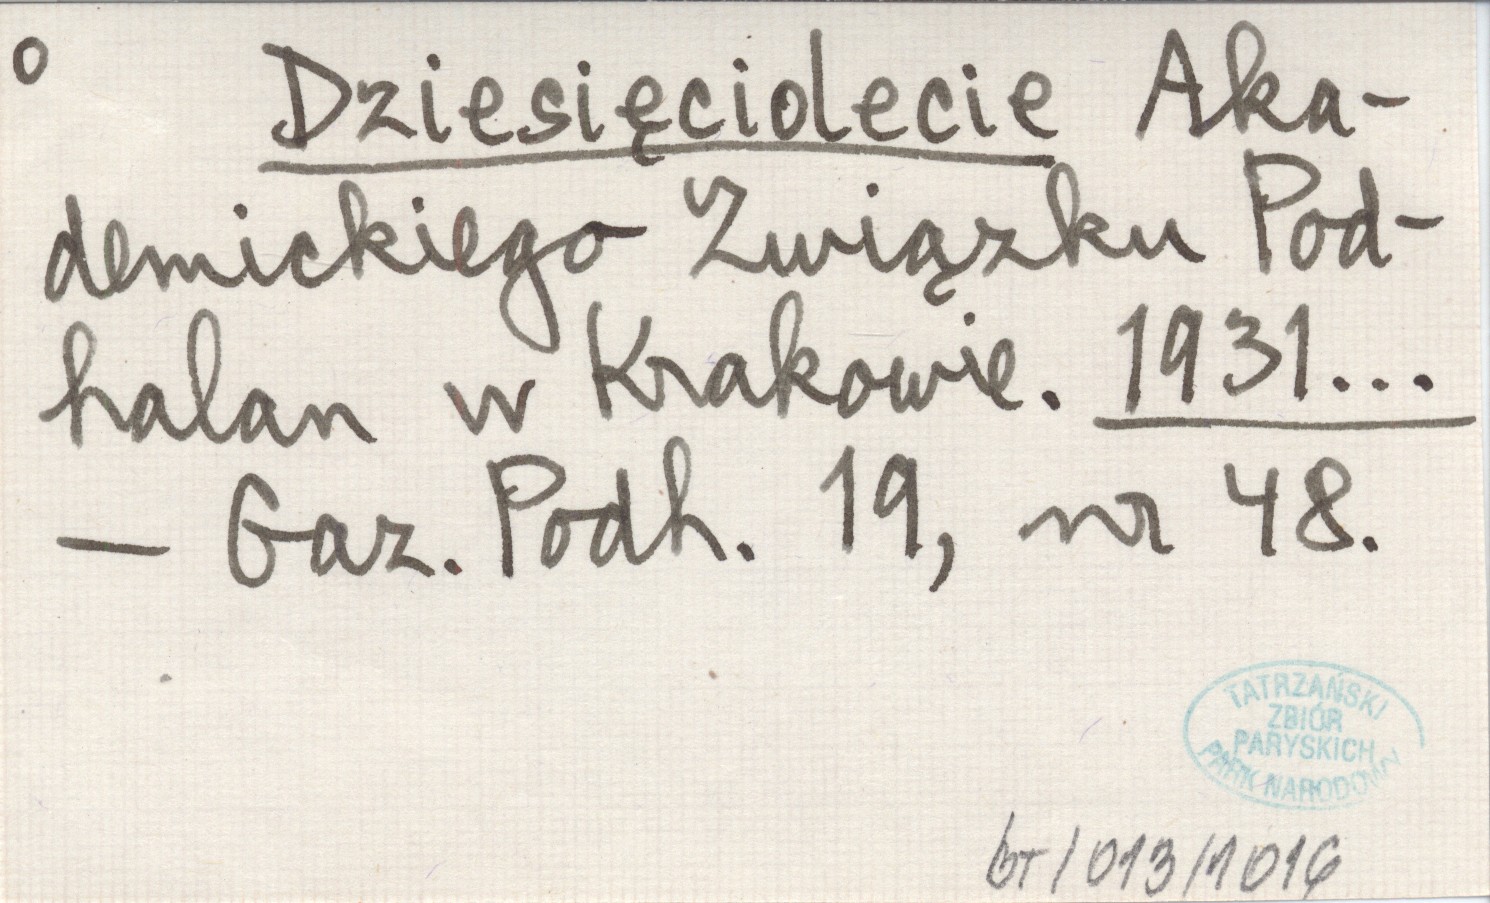 o Dziesięciolecie Aka-
demickiego Związku Pod-
halan w Krakowie. 1931...
— Gaz. Podh. 19, nr 48.
TATRZAŃSKI
ZBIÓR
PARYSKICH
PARK NARODOWY
bT/013/1016